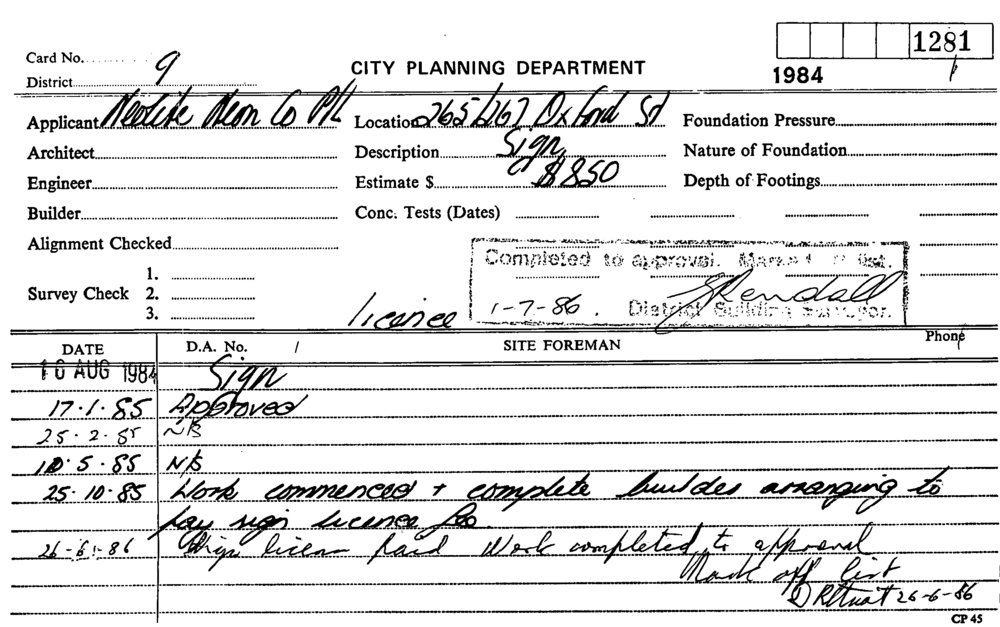 1281
Card No. 9
CITY PLANNING DEPARTMENT
1984
District
Applicant Neolite Neon Co P/L
Location 265/267 Oxford St
Foundation Pressure
Architect
Description Sign
Nature of Foundation
Engineer
Estimate $ $850
Depth of Footings
Builder
Conc. Tests (Dates)
Alignment Checked
Completed to approval. list.
Survey Check 1. 2. 3.
licence
1-7-86. District Building Surveyor.
DATE D.A. No. / SITE FOREMAN Phone
10 AUG 1984 Sign
17.1.85 Approved
25.2.85 N/S
10.5.85 N/S
25.10.85 Work commenced + complete builder arranging to
pay sign licence fee.
26-6-86 Sign licence paid Work completed to approval
Mark off list
26-6-86
CP 45